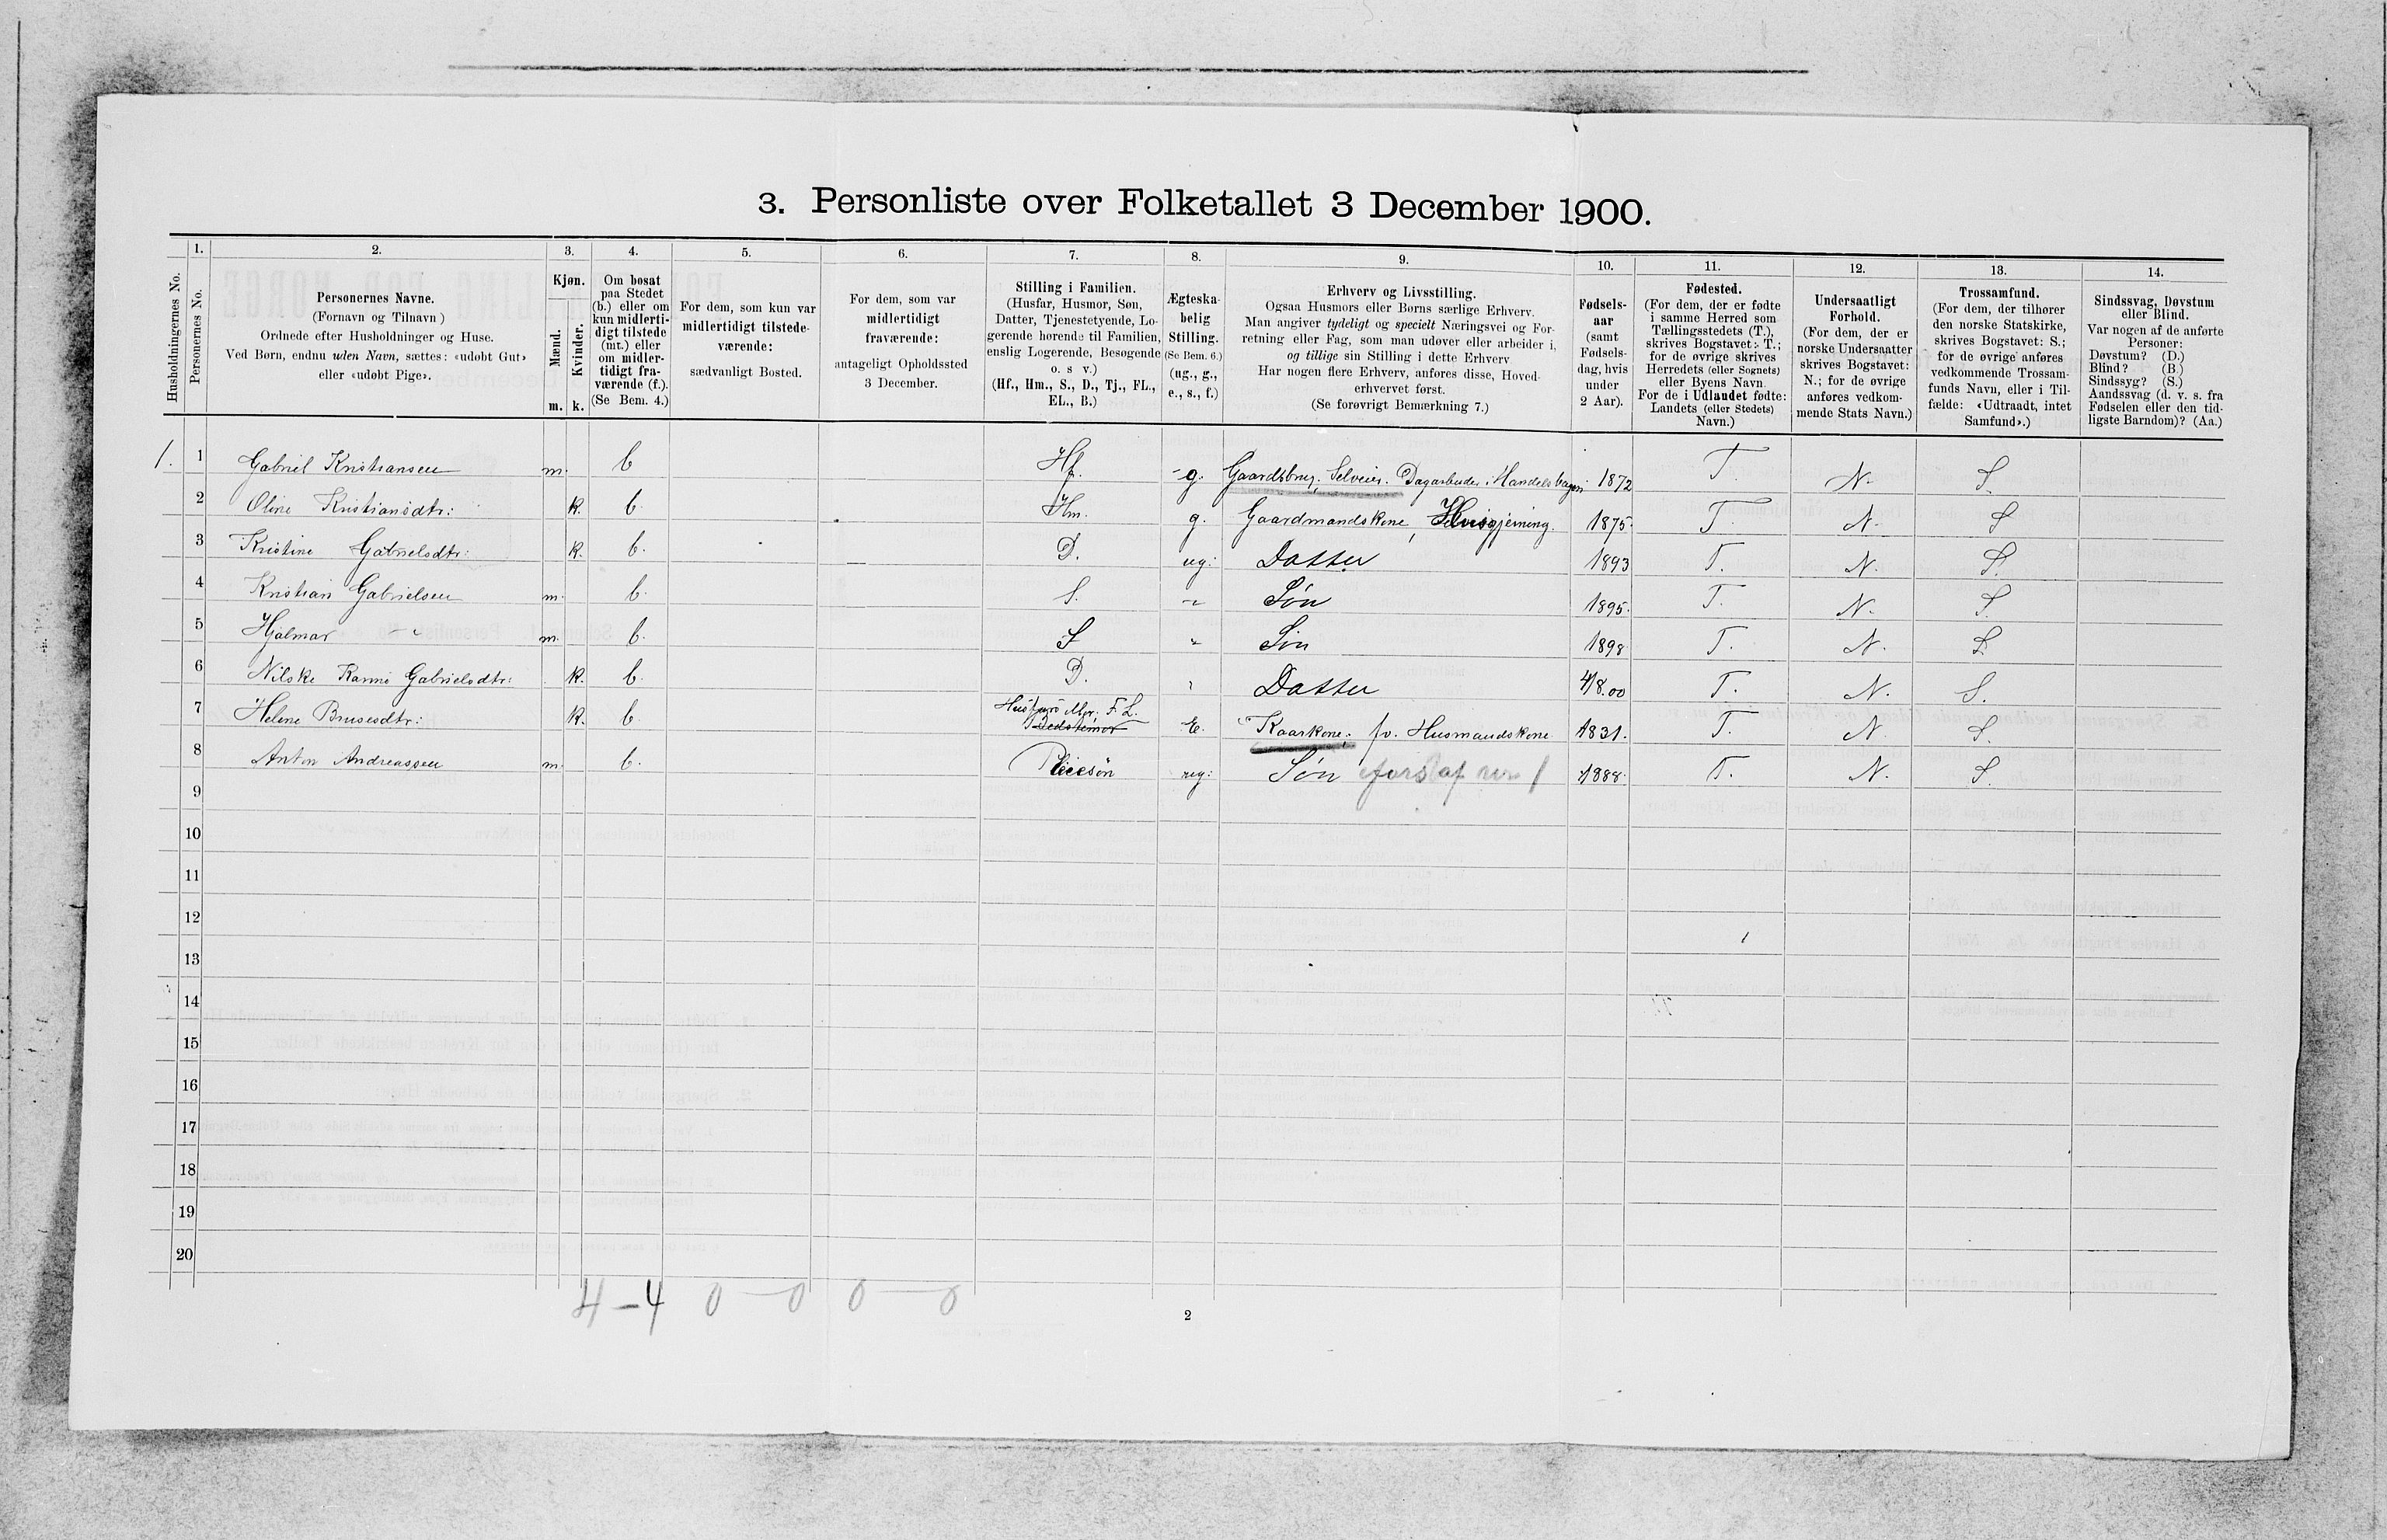 3. Personliste over Folketallet 3 December 1900.
Husholdningernes No.
1.
Personernes No.
2.
Personernes Navne.
(Fornavn og Tilnavn)
Ordnede efter Husholdninger og Huse.
Ved Børn, endnu uden Navn, sættes: «udøbt Gut»
eller «udøbt Pige».
3.
Kjøn.
Mænd.
Kvinder.
m.
k.
4.
Om bosat
paa Stedet
(b.) eller om
kun midlerti-
digt tilstede
(mt.) eller
om midler-
tidigt fra-
værende (f.).
(Se Bem. 4.)
5.
For dem, som kun var
midlertidigt tilstede-
værende:
sædvanligt Bosted.
6.
For dem, som var
midlertidigt
fraværende:
antageligt Opholdssted
3 December.
7.
Stilling i Familien.
(Husfar, Husmor, Søn,
Datter, Tjenestetyende, Lo-
gerende hørende til Familien,
enslig Logerende, Besøgende
o. s v.)
(Hf., Hm., S., D., Tj., FL.,
EL., B.)
8.
Ægteska-
belig
Stilling.
(Se Bem. 6.)
(ug., g.,
e., s., f.)
9.
Erhverv og Livsstilling.
Ogsaa Husmors eller Børns særlige Erhverv.
Man angiver tydeligt og specielt Næringsvei og For-
retning eller Fag, som man udøver eller arbeider i,
og tillige sin Stilling i dette Erhverv
Har nogen flere Erhverv, anføres disse, Hoved-
erhvervet først.
(Se forøvrigt Bemærkning 7.)
10.
Fødsels-
aar
(samt
Fødsels-
dag, hvis
under
2 Aar).
11.
Fødested.
(For dem, der er fødte
i samme Herred som
Tællingsstedets (T.),
skrives Bogstavet: T.;
for de øvrige skrives
Herredets (eller Sognets)
eller Byens Navn
For de i Udlandet fødte:
Landets (eller Stedets)
Navn.)
12.
Undersaatligt
Forhold.
(For dem, der er
norske Undersaatter
skrives Bogstavet:
N.; for de øvrige
anføres vedkom-
mende Stats Navn.)
13.
Trossamfund.
(For dem, der tilhører
den norske Statskirke,
skrives Bogstavet: S.;
for de øvrige anføres
vedkommende Trossam-
funds Navn, eller i Til-
fælde: «Udtraadt, intet
Samfund».)
14.
Sindssvag, Døvstum
eller Blind.
Var nogen af de anførte
Personer:
Døvstum? (D.)
Blind? (B.)
Sindssyg? (S.)
Aandssvag (d. v. s. fra
Fødselen eller den tid-
ligste Barndom)? (Aa.)
1. 1 Gabriel Kristiansen m. b Hf. g. Gaardsbrug. Selveier. Dagarbeider i Handels 1872 T. N. S.
2 Oline Kristiansdtr: k. b. Hm. g. Gaardmandskone, Husgjerning. 1875. T. N. S
3 Kristine Gabrielsdtr: k. b. D. ug: Datter 1893 T. N. S.
4 Kristian Gabrielsen m. b. S. " Søn 1895. T. N. S.
5 Hjalmar — " m. b. S " Søn 1898 T. N. S.
6 Gabrielsdtr: k. b. D. " Datter 4/8.00 T. N. S.
7 Helene k. b. Husfars Mor. F. L. Bedstemor E. Kaarkone, fv. Husmandskone 1831. T. N. S.
8 Anton Andreassen m. b. Pleiesøn ug: Søn fors. af nr 1 1888. T. N. S.
9
10
11
12
13
14
15
16
17
18
19
20
4 - 4 0 — 0 0 — 0
2